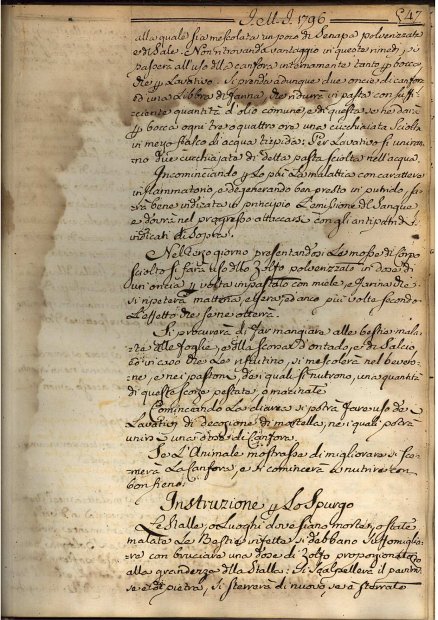 I. M. I. 1796 547
alla quale sia mescolata un poco di Senapa polverizzata
e di Sale. Non ritrovando vantaggio in questo rimedio, si
passerà all'uso della canfora internamente tanto p bocca,
che p Lavativo. Si prenda adunque due oncie di canfora
ed una Libbra di farina, che ridurrà in pasta con suffi-
ciente quantità d'olio comune, e di questa se ne donerà
p bocca ogni tre o quattro ore una cucchiajata sciolta
in mezo fiasco di acqua tiepida: Per Lavativo si uniran-
no due cucchiajate di detta pasta sciolta nell'acqua.
Incominciando p Lo più La malattia con carattere
inflammatorio, e degenerando ben presto in putrido, sa-
rà bene indicata in principio L'emissione del Sangue
e dovrà nel progresso attaccarsi con gli antiputridi
indicati di Sopra.
Nel terzo giorno presentandosi Le mosse di Corpo
sciolto si farà uso dello Zolfo polverizzato in dose di
un'oncia p volta impastato con miele, e farina che
si ripeterà mattina, e sera, ed anco più volte secondo
L'effetto che se ne otterrà.
Si procurerà di far mangiare alle bestie mala-
te delle foglie, e della scorza d'ontado, e di Salcio,
ed in caso che Lo rifiutino, si mescolerà nel bevero-
ne, e nei pastoni, dei quali si nutrono, una quantità
di queste scorze pestate, o macinate
Cominciando La diarea si potrà fare uso de
Lavativi di decozione di mortella, nei quali potrà
unirsi una dose di Canfora.
Se L'Animale mostrasse di migliorare si sce-
merà La Canfora, e si comincerà a nutrire con
bon fieno.
Instruzione p Lo Spurgo
Le Stalle, o Luoghi dove siano morte, o state
malate Le Bestie infette si debbano Suffomiga-
re con bruciare una dose di Zolfo proporzionata
alla grandezza della Stalla: Si scalpellerà il pavimento
se è di pietra, si sterrerà di nuovo se è sterrato